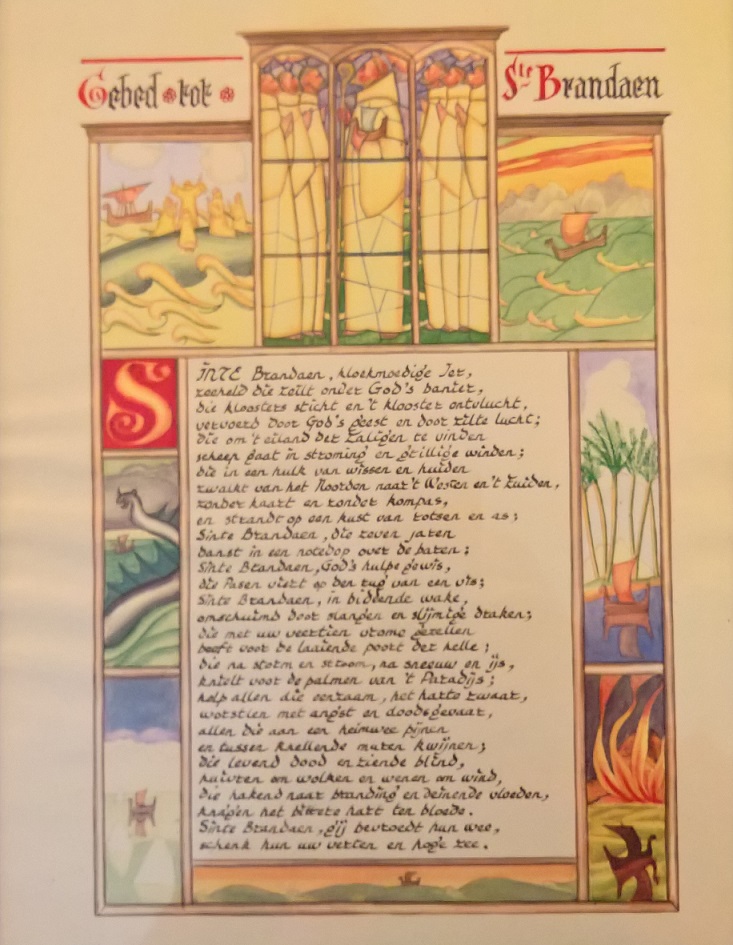 Gebed tot
Ste Brandaen
SINTE Brandaen, kloekmoedige Ier,
zeeheld die zeilt onder God's banier,
die kloosters sticht en 't klooster ontvlucht,
vervoerd door God's geest en door zilte lucht;
die om 't eiland der zaligen te vinden
scheep gaat in stroming en grillige winden;
die in een hulk van wissen en huiden
zwalkt van het Noorden naar 't Westen en 't Zuiden,
zonder kaart en zonder kompas,
en strandt op een kust van rotsen en as;
Sinte Brandaen, die zeven jaren
danst in een notedop over de baren;
Sinte Brandaen, God's hulpe gewis,
die Pasen viert op den rug van een vis;
Sinte Brandaen, in biddende wake,
omschuimd door slangen en slijmige draken;
die met uw veertien vrome gezellen
beeft voor de laaiende poort der helle;
die na storm en stroom, na sneeuw en ijs,
knielt voor de palmen van 't Paradijs;
help allen die eenzaam, het harte zwaar,
worstlen met angst en doodsgevaar,
allen die aan een heimwee pijnen
en tussen knellende muren kwijnen;
die levend dood en ziende blind,
huivren om wolken en wenen om wind,
die hakend naar branding en deinende vloeden,
knagen het bittere hart ten bloede.
Sinte Brandaen, gij bevroedt hun wee,
schenk hun uw verten en hoge zee.